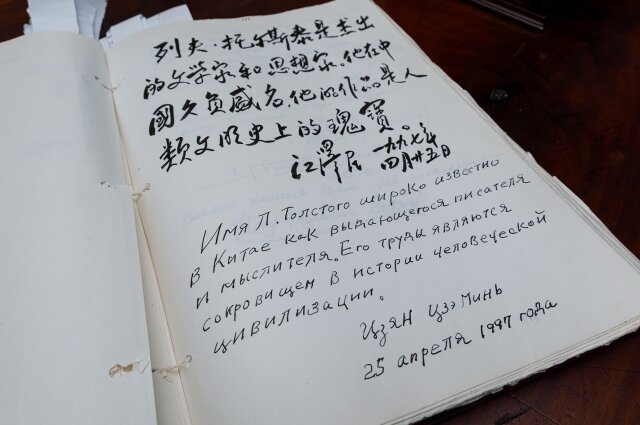 列夫·托尔斯泰是杰出
的文学家和思想家,他在中
國久负盛名,他的作品是人
類文明史上的瑰寶
江澤民 一九九七年
四月廿五日
Имя Л. Толстого широко известно
в Китае как выдающегося писателя
и мыслителя. Его труды являются
сокровищем в истории человеческой
цивилизации.
Цзян Цзэминь
25 апреля 1997 года